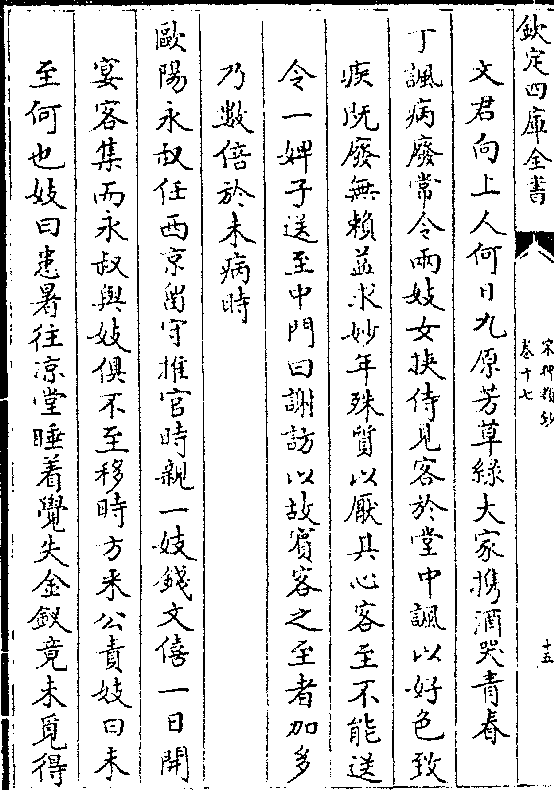 欽定四庫全書
宋稗類鈔
卷十七
十五
文君向上人何日九原芳草緑大家携酒哭青春
丁諷病廢常令兩妓女挾侍見客於堂中諷以好色致
疾既廢無賴益求妙年殊質以厭其心客至不能送
令一婢子送至中門曰謝訪以故賓客之至者加多
乃數倍於未病時
歐陽永叔任西京留守推官時親一妓錢文僖一日開
宴客集而永叔與妓俱不至移時方來公責妓曰未
至何也妓曰患暑往凉堂睡着覺失金釵竟未覓得